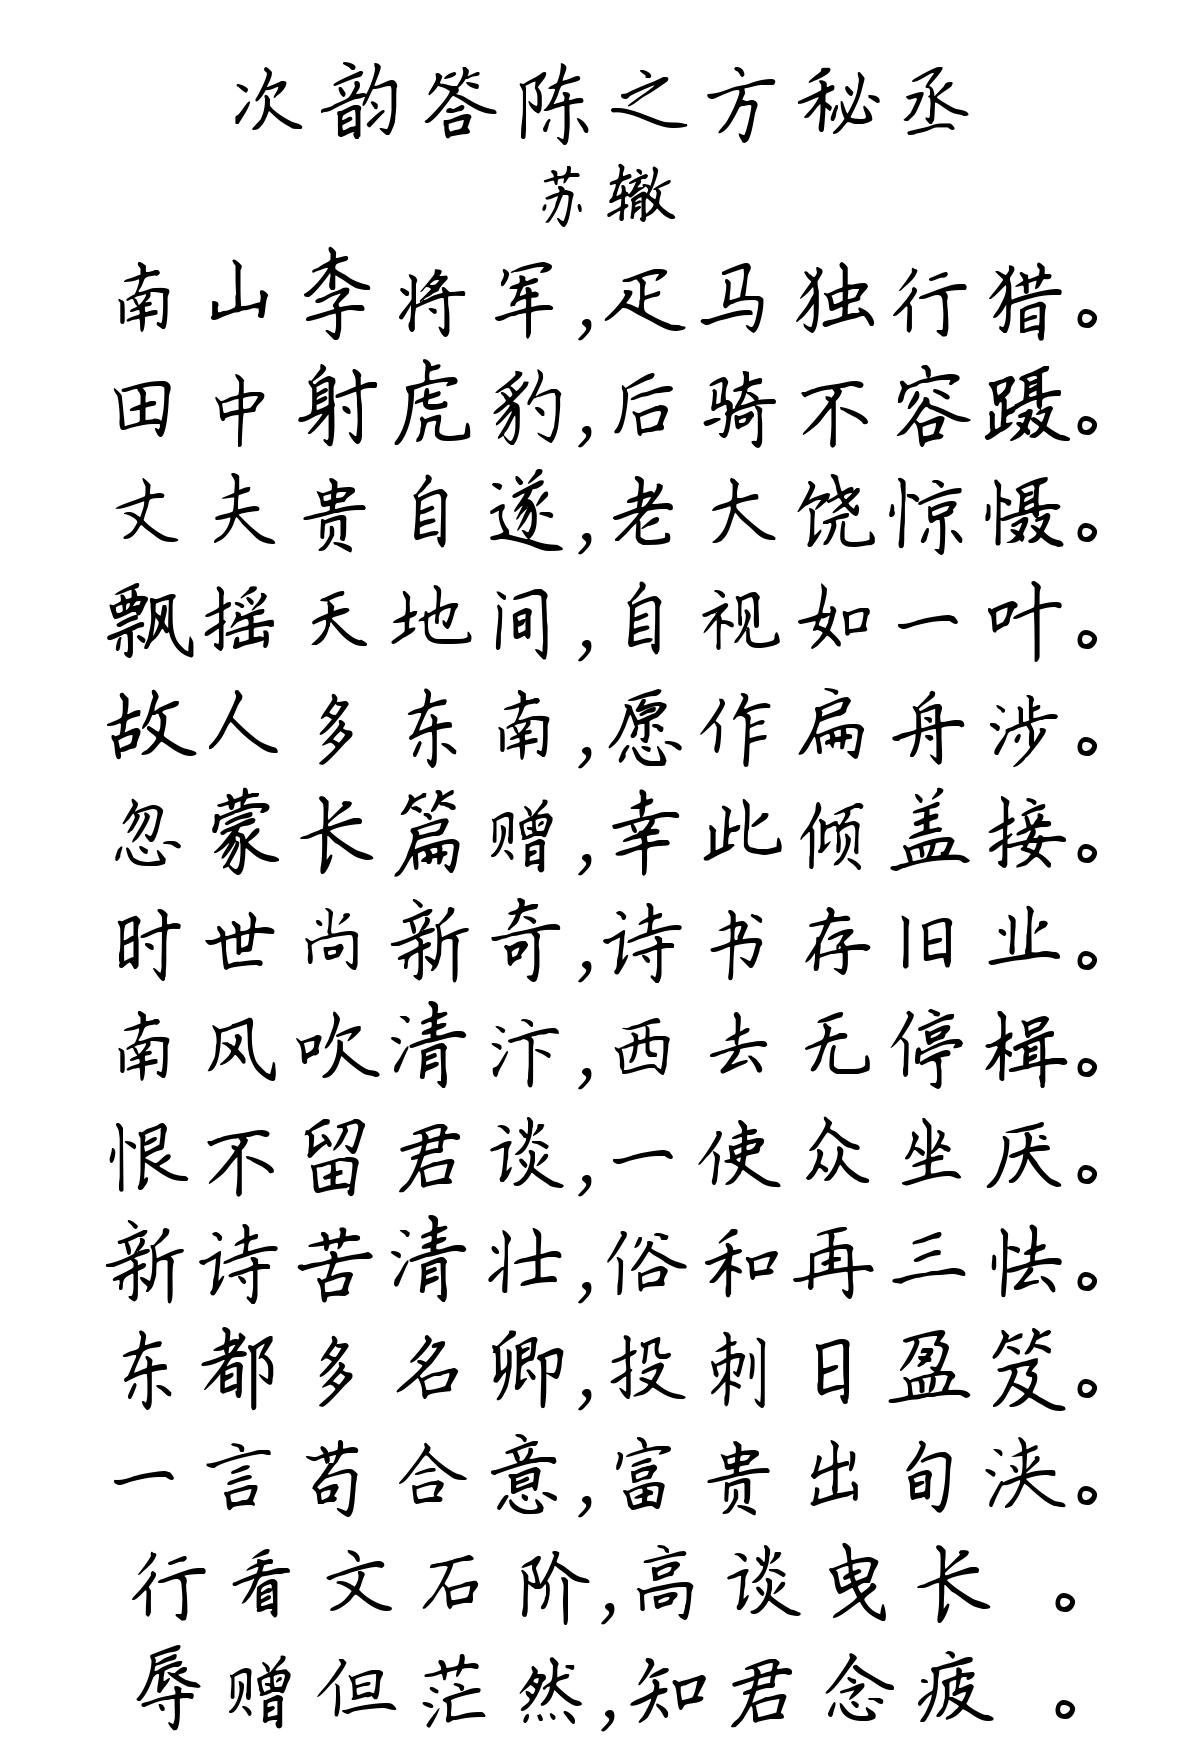 次韵答陈之方秘丞
苏辙
南山李将军,疋马独行猎。
田中射虎豹,后骑不容蹑。
丈夫贵自遂,老大饶惊慑。
飘摇天地间,自视如一叶。
故人多东南,愿作扁舟涉。
忽蒙长篇赠,幸此倾盖接。
时世尚新奇,诗书存旧业。
南风吹清汴,西去无停楫。
恨不留君谈,一使众坐厌。
新诗苦清壮,俗和再三怯。
东都多名卿,投刺日盈笈。
一言苟合意,富贵出旬浃。
行看文石阶,高谈曳长 。
辱赠但茫然,知君念疲 。